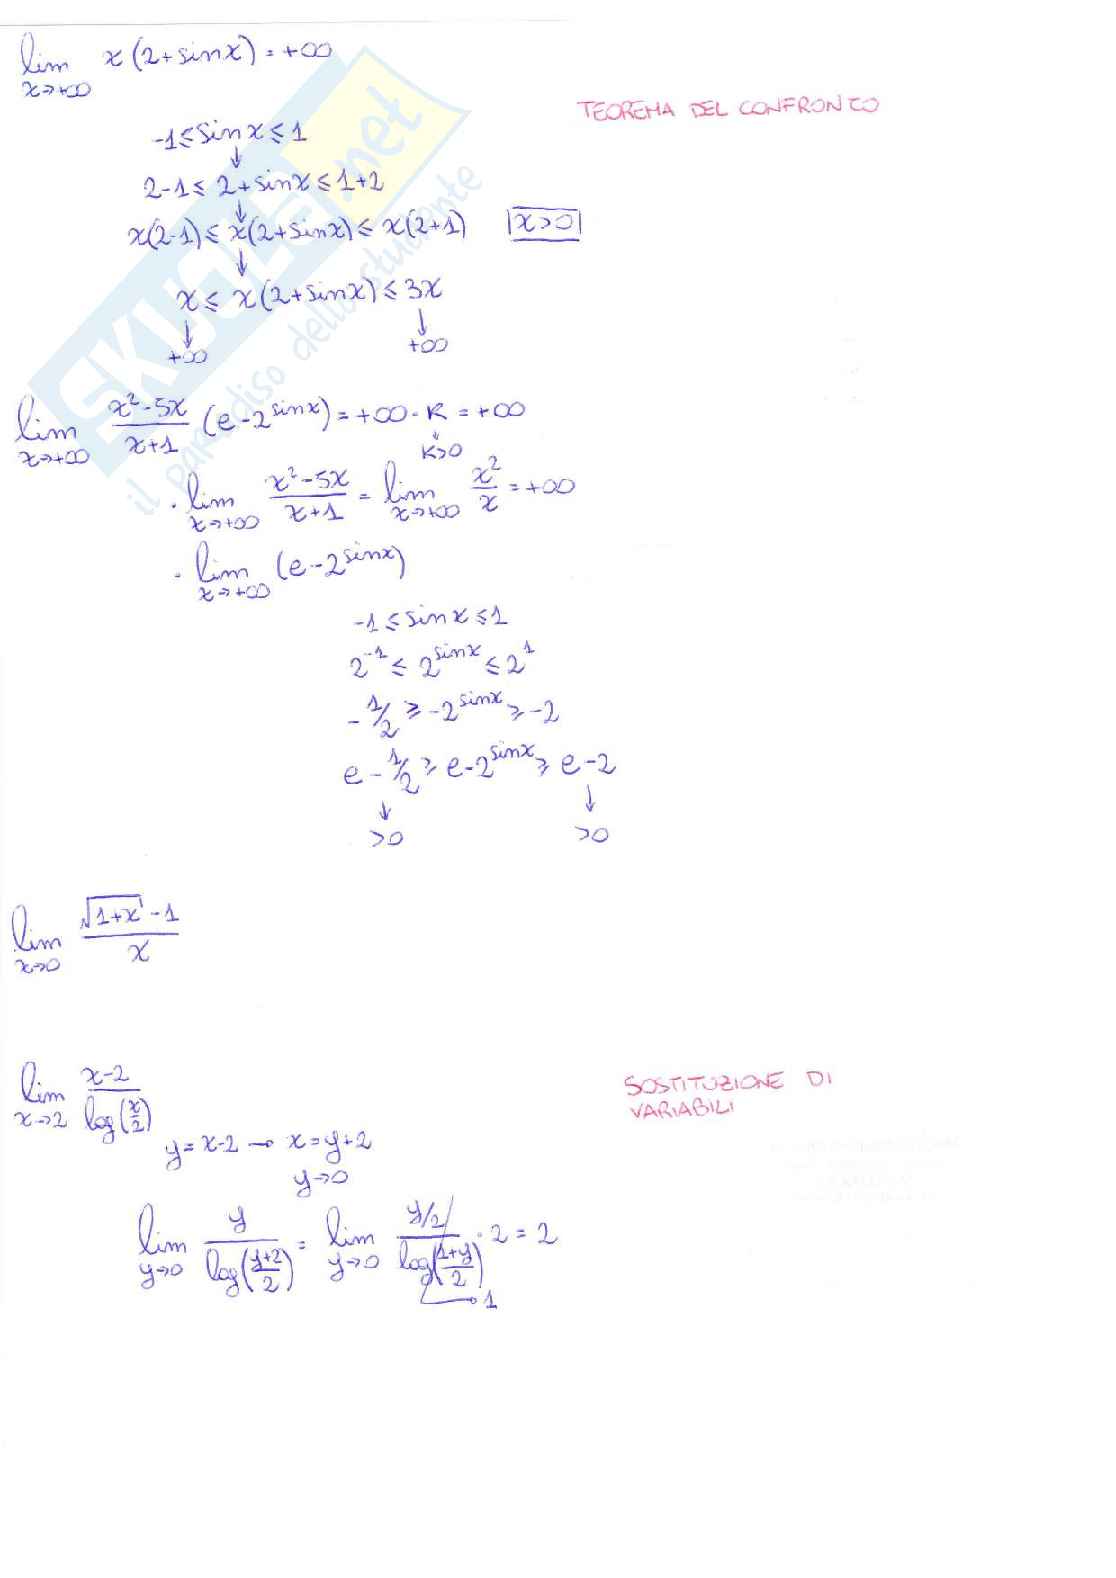 lim x→+∞ x(2+sinx) = +∞
TEOREMA DEL CONFRONTO
-1 ≤ sinx ≤ 1
↓
2-1 ≤ 2+sinx ≤ 1+2
↓
x(2-1) ≤ x(2+sinx) ≤ x(2+1) |x>0|
↓
x ≤ x(2+sinx) ≤ 3x
↓ ↓
+∞ +∞
lim x→+∞ (x²-5x)/(x+1) (e-2^sinx) = +∞ · K = +∞
↓
K>0
· lim x→+∞ (x²-5x)/(x+1) = lim x→+∞ x²/x = +∞
· lim x→+∞ (e-2^sinx)
-1 ≤ sinx ≤ 1
2^-1 ≤ 2^sinx ≤ 2^1
-1/2 ≥ -2^sinx ≥ -2
e-1/2 ≥ e-2^sinx ≥ e-2
↓ ↓
>0 >0
lim x→0 (√(1+x) -1)/x
lim x→2 (x-2)/log(x/2)
SOSTITUZIONE DI
VARIABILI
y = x-2 → x = y+2
y→0
lim y→0 y/log((y+2)/2) = lim y→0 (y/2)/log((1+y)/2) · 2 = 2
→ 1
SKUOLA.net
il paradiso dello studente